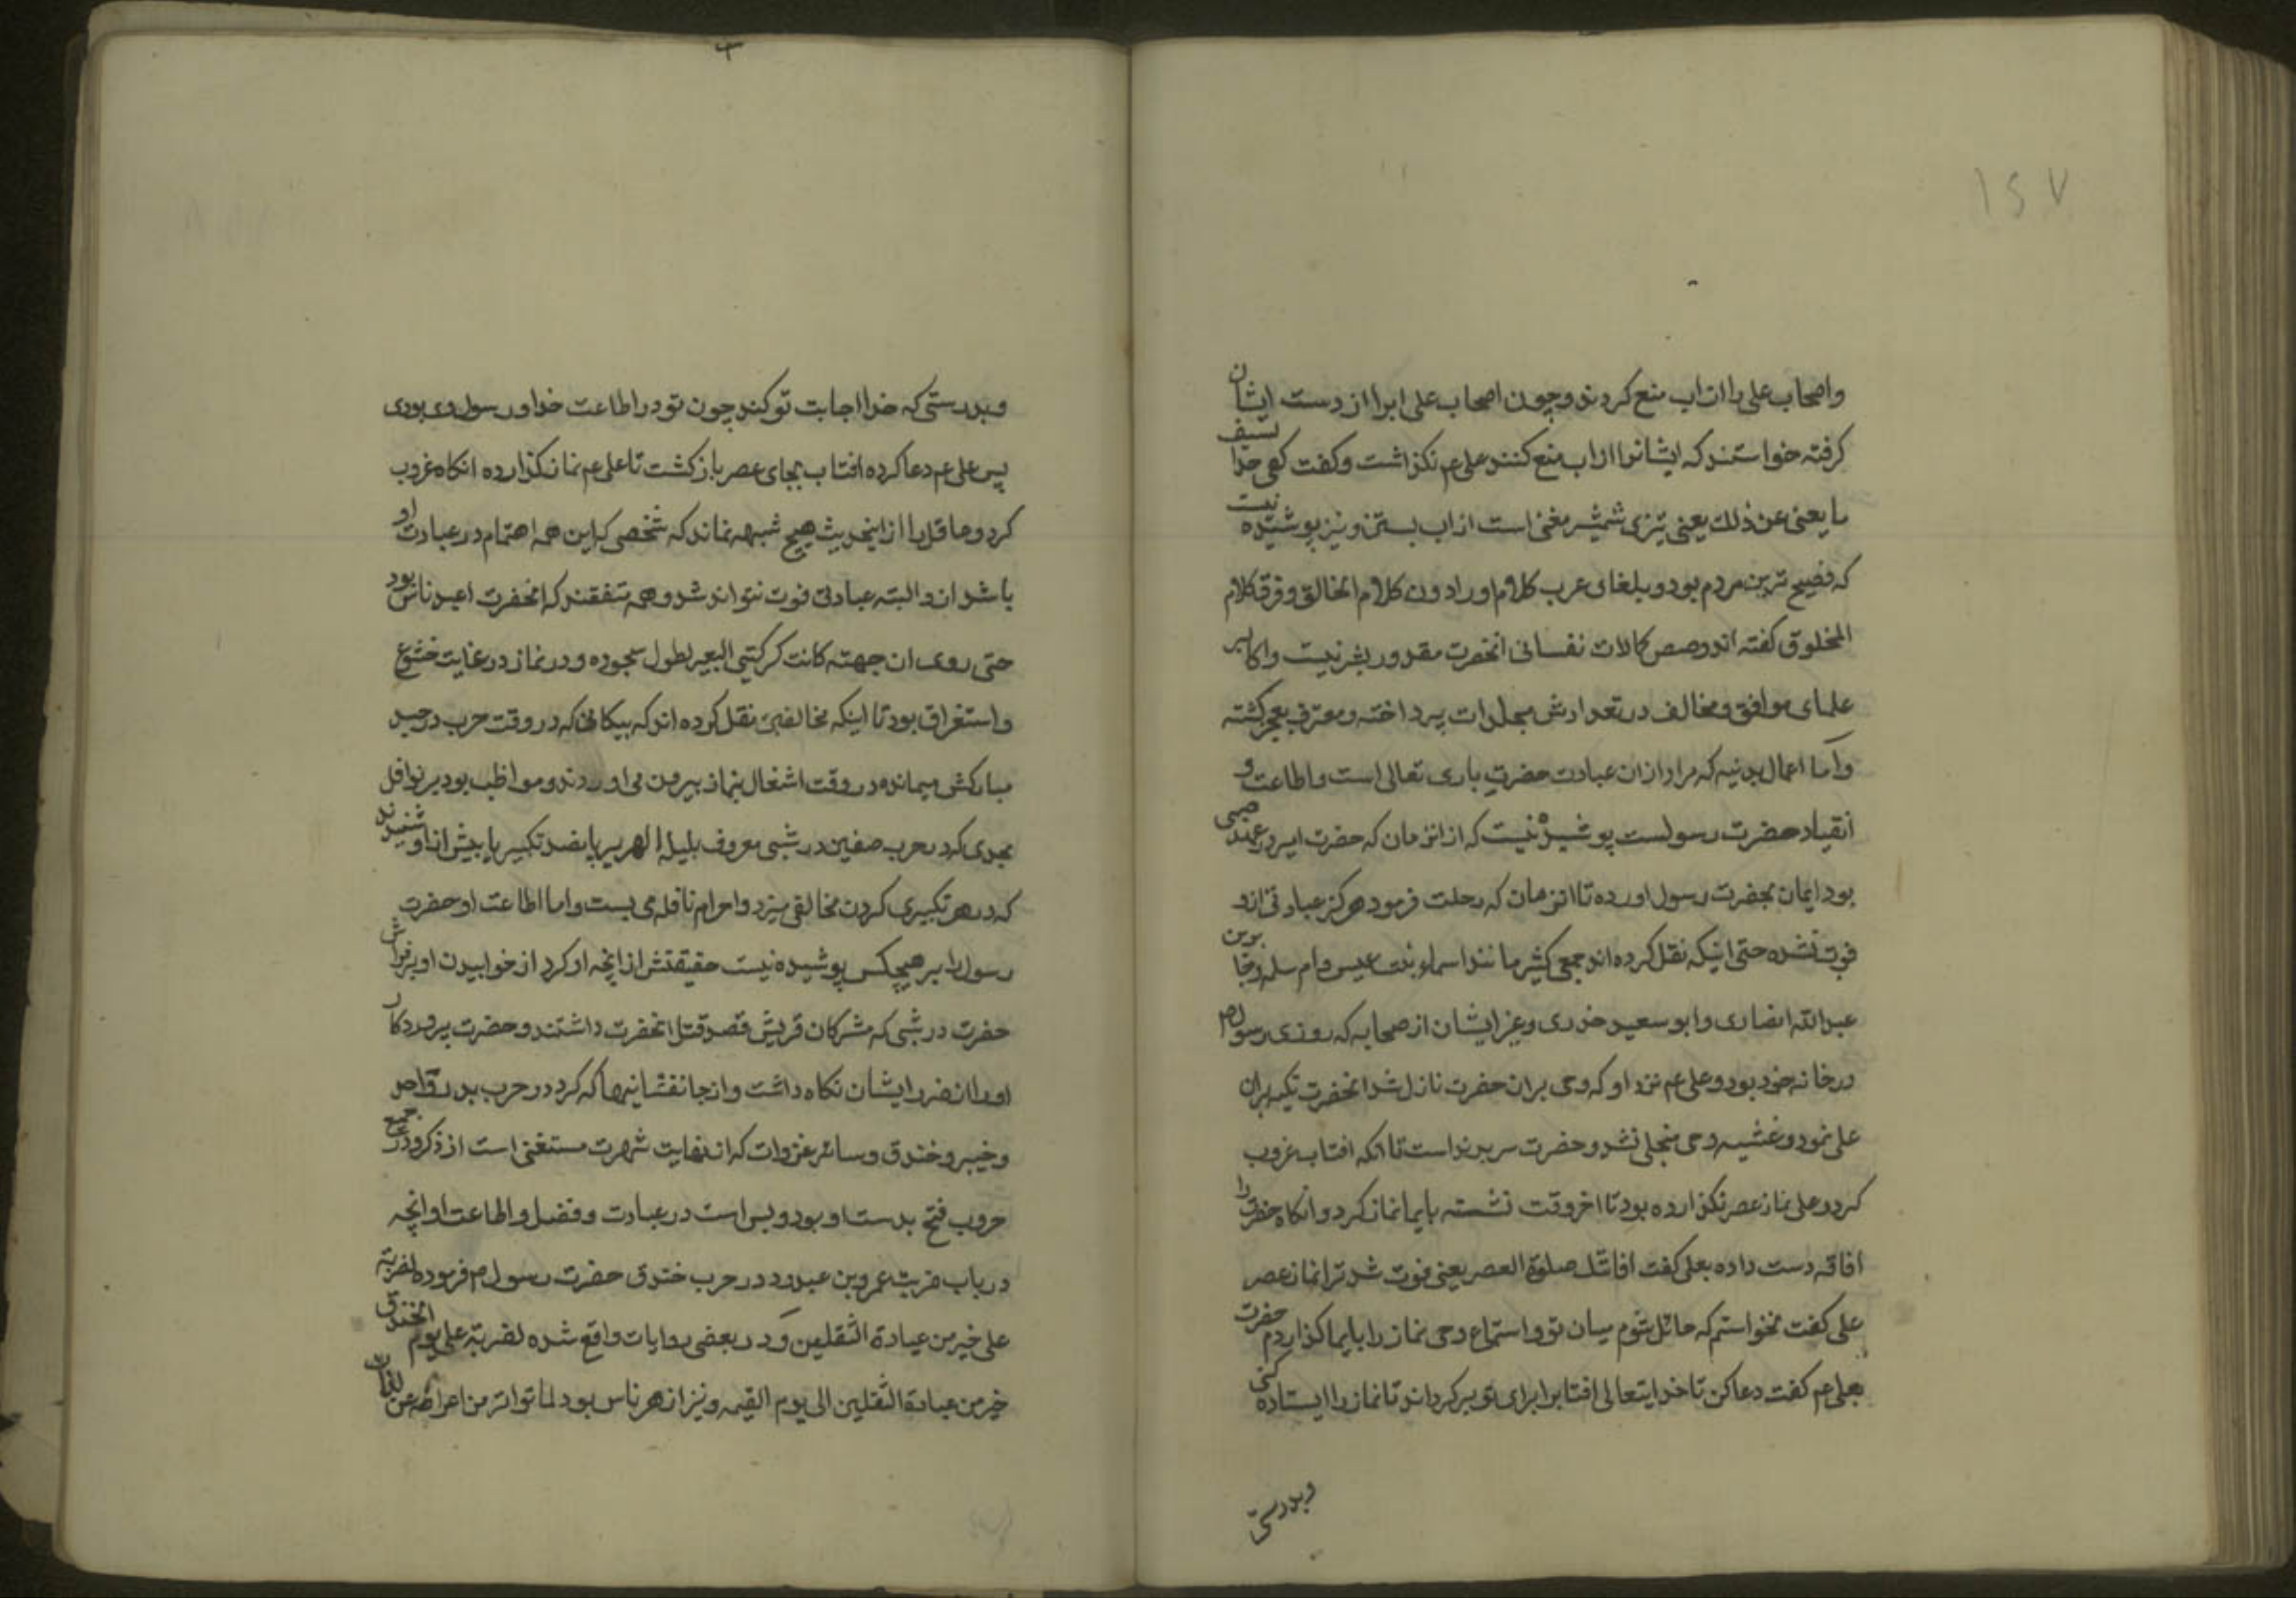 ١٤٧
واصحاب علی را از اب منع کردند و چون اصحاب علی ابرا از دست ایشان
کرفته خواستند که ایشانرا از اب منع کنند علی عم نکذاشت و کفت کفی حد السیف
ما یغنی عن ذلک یعنی تیزی شمشیر مغنی است از اب بستن و نیز پوشیده نیست
که فصیح ترین مردم بود و بلغای عرب کلام او را دون کلام الخالق و فرق کلام
المخلوق کفته اند و حصر کمالات نفسانی انحضرت مقدور بشر نیست و اکابر
علمای موافق و مخالف در تعدادش مجلدات پرداخته و معترف بعجز کشته
و اما اعمال بدنیه که مراد از ان عبادت حضرت باری تعالی است و اطاعت و
انقیاد حضرت رسولست پوشیده نیست که از انزمان که حضرت امیر در عهد صبی
بود ایمان بحضرت رسول اورده تا انزمان که رحلت فرمود هرکز عبادتی ازو
فوت نشده حتی اینکه نقل کرده اند جمعی کثیر مانند اسماء بنت عمیس و ام سلمه و جابر بن
عبدالله انصاری و ابو سعید خدری و غیر ایشان از صحابه که روزی رسول ص
در خانه خود بود و علی عم نزد او که وحی بران حضرت نازل شد انحضرت تکیه بران
علی نمود و غشیه وحی منجلی نشد و حضرت سر برنداست تا انکه افتاب غروب
کرد و علی نماز عصر نکذارده بود تا اخر وقت نشسته بایما نماز کرد و انکاه حضرت را
افاقه دست داده بعلی کفت افاتتک صلوة العصر یعنی فوت شد ترا نماز عصر
علی کفت نخواستم که حائل شوم میان تو و استماع وحی نماز را بایما کذاردم حضرت
بعلی عم کفت دعا کن تا خدایتعالی افتابرا برای تو برکرداند تا نماز را ایستاده کنی
و بدرستی
و بدرستی که خدا اجابت تو کند چون تو در اطاعت خدا و رسول وی بودی
پس علی عم دعا کرده افتاب بجای عصر باز کشت تا علی عم نماز کذارده انکاه غروب
کرد و عاقل را از اینحدیث هیچ شبهه نماند که شخصی که این همه اهتمام در عبادت او
باشد ازو البته عبادتی فوت نتواند شد و همه متفقند که انحضرت اعبد ناس بود
حتی روی ان جبهته کانت کرکبتی البعیر لطول سجوده و در نماز در غایت خشوع
و استغراق بود تا اینکه مخالفین نقل کرده اند که پیکانی که در وقت حرب در جسد
مبارکش میمانده در وقت اشتغال بنماز بیرون می اوردند و مواظب بود بر نوافل
بحدی که در حرب صفین در شبی معروف بلیلة الهریر پانصد تکبیر یا بیش ازاو شنیدند
که در هر تکبیری کردن مخالفی میزد و احرام نافله می بست و اما اطاعت او حضرت
رسول را بر هیچکس پوشیده نیست حقیقتش از انچه او کرد از خوابیدن او بر فراش
حضرت در شبی که مشرکان قریش قصد قتل انحضرت داشتند و حضرت پروردکار
او را از ضرر ایشان نکاه داشت و از جانفشانیها که کرد در حرب بدر و احد
و خیبر و خندق و سائر غزوات که از نهایت شهرت مستغنی است از ذکر و در جمیع
حروب فتح بدست او بود و بس است در عبادت و فضل و اطاعت او انچه
در باب ضربت عمرو بن عبدود در حرب خندق حضرت رسول ص فرموده لضربة
علی خیر من عبادة الثقلین و در بعضی روایات واقع شده لضربة علی یوم الخندق
خیر من عبادة الثقلین الی یوم القیمه و نیز ازهد ناس بود لما تواتر من اعراضه عن لذات